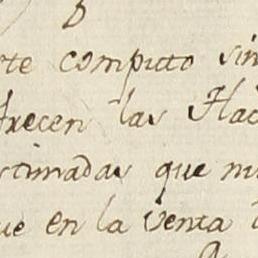 rte computo sin
frecen las Hac
stimadas que n
ue en la venta